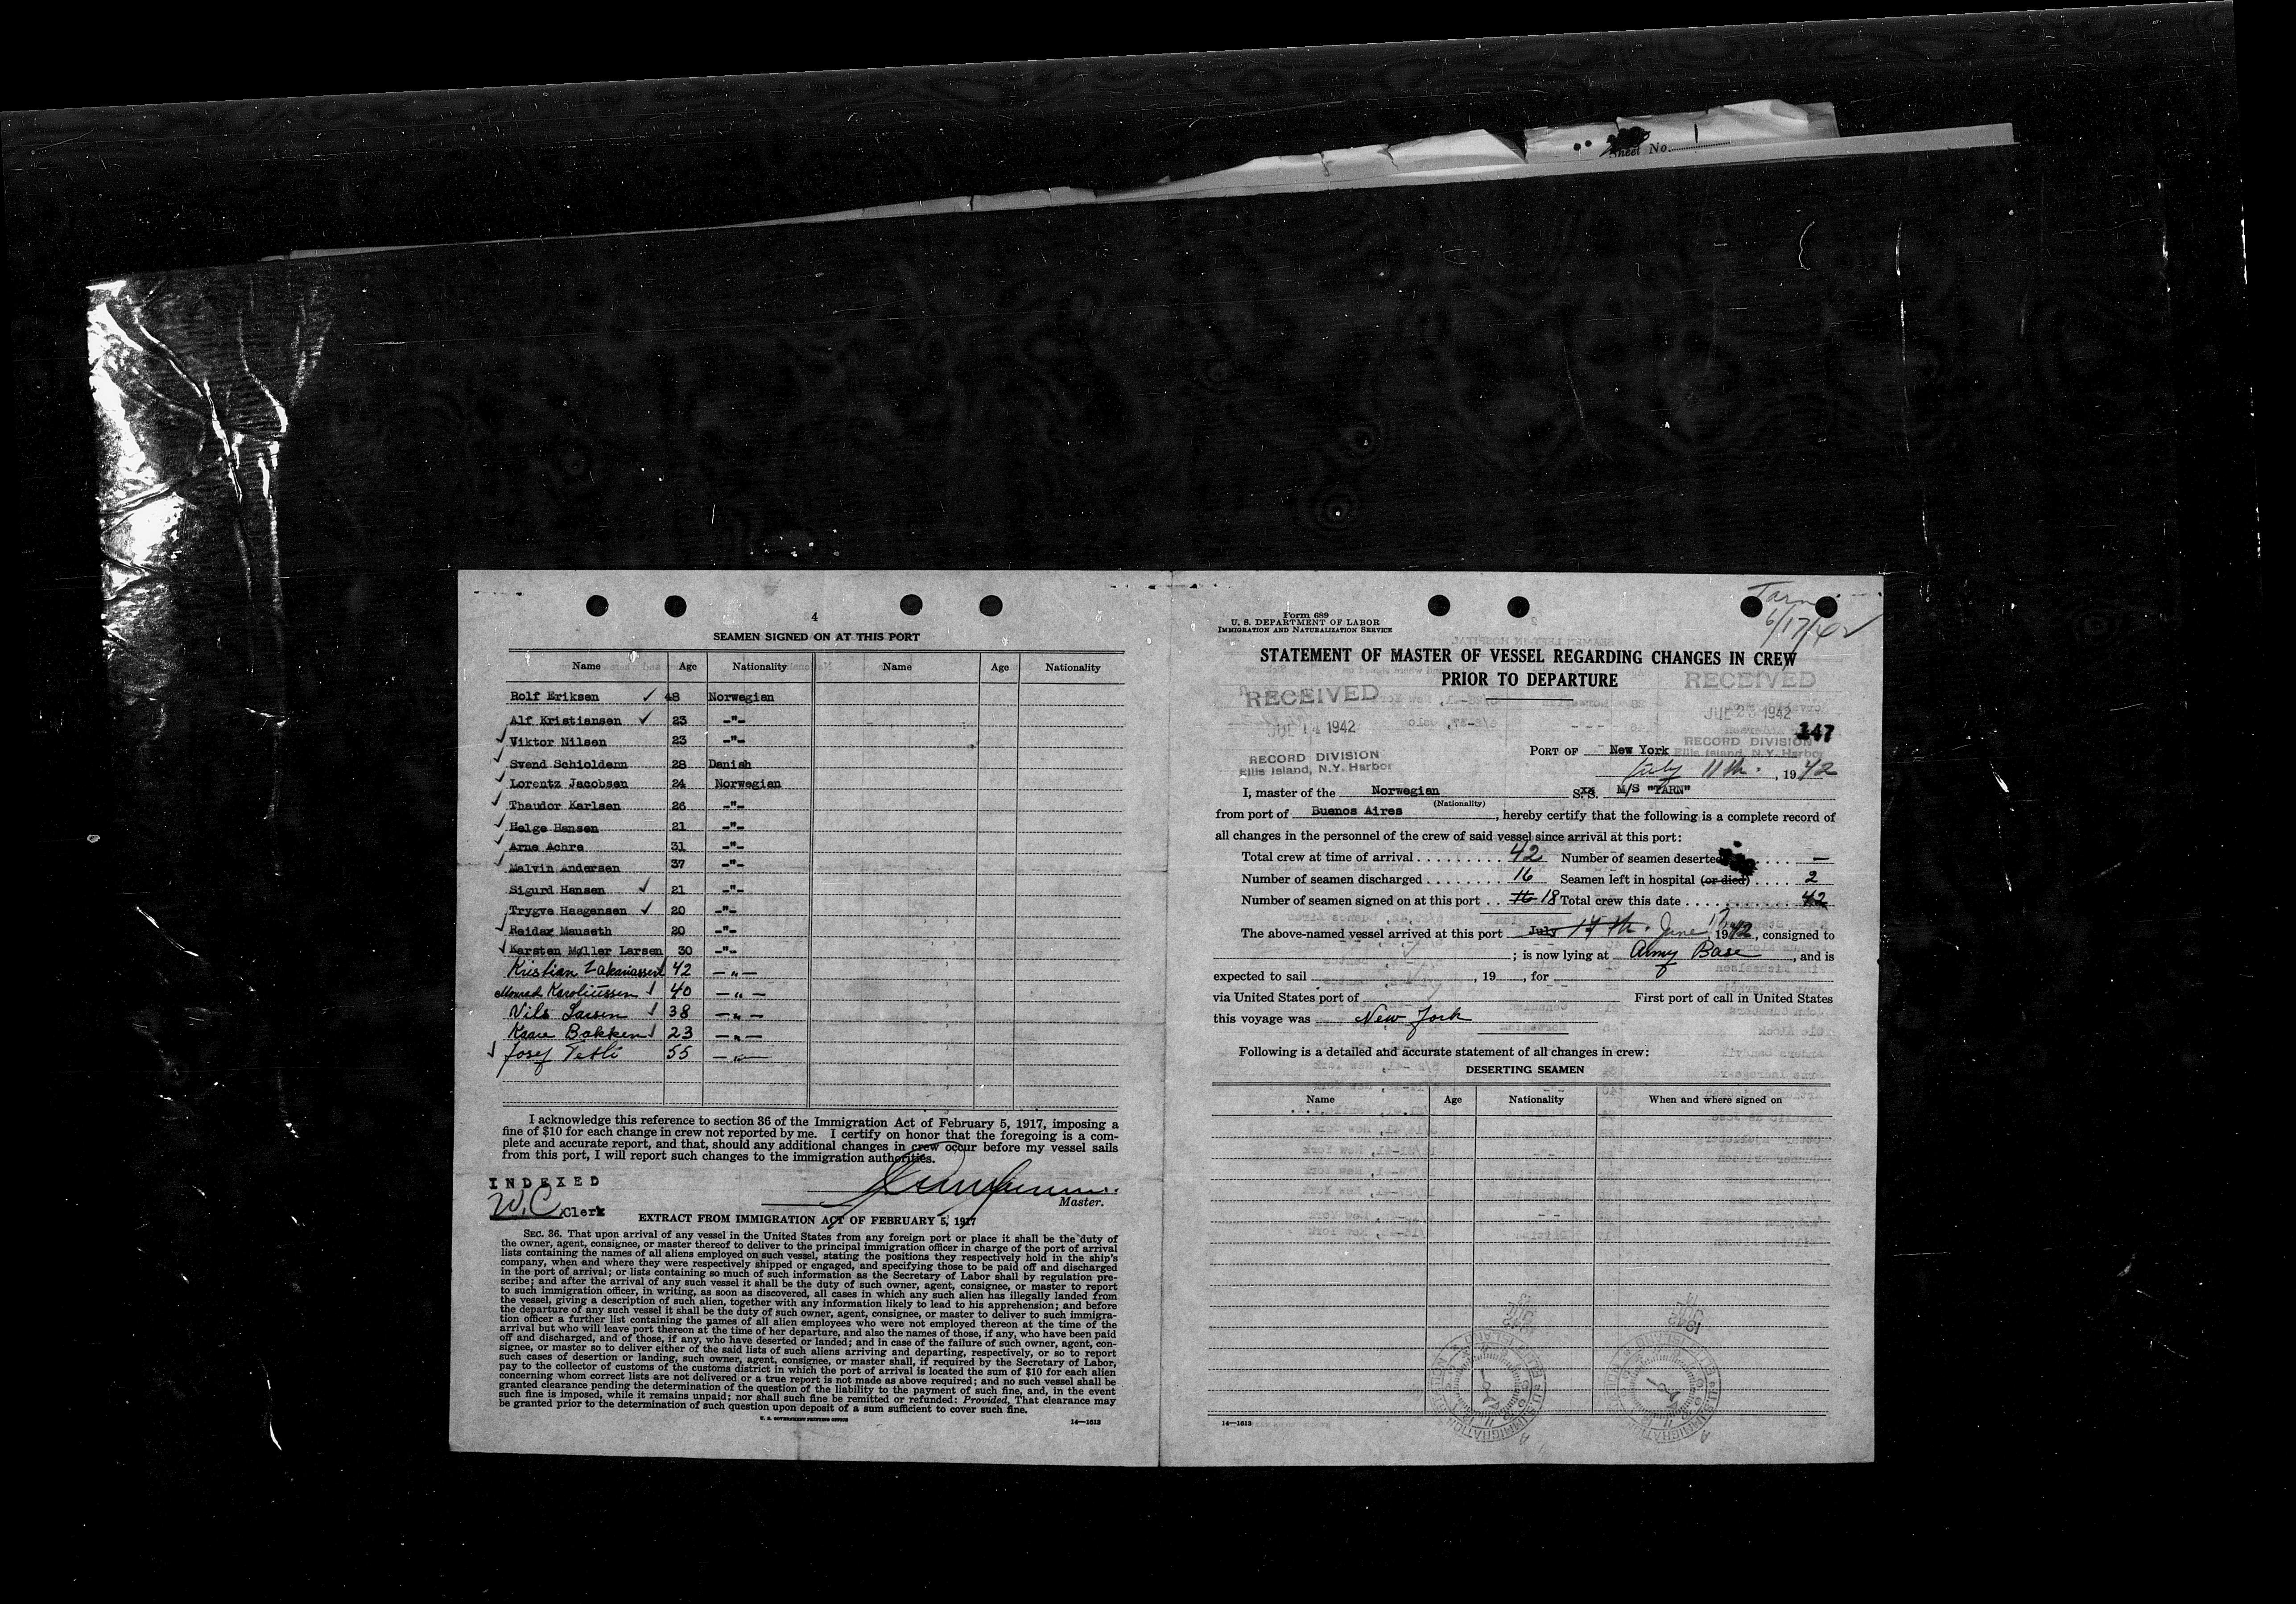 Sheet No. 1
4
SEAMEN SIGNED ON AT THIS PORT
Name Age Nationality Name Age Nationality
Rolf Eriksen ✓ 48 Norwegian
Alf Kristiansen ✓ 23 -"-
✓ Viktor Nilsen 23 -"-
✓ Svend Schioldann 28 Danish
✓ Lorentz Jacobsen 24 Norwegian
✓ Thaudor Karlsen 26 -"-
✓ Helge Hansen 21 -"-
✓ Arne Achre 31 -"-
✓ Malvin Andersen 37 -"-
Sigurd Hansen ✓ 21 -"-
Trygve Haagensen ✓ 20 -"-
✓ Reidar Mauseth 20 -"-
✓ Karsten Møller Larsen 30 -"-
Kristian 42 -"-
Monrad Karoliussen ✓ 40 -"-
Nils Larsen ✓ 38 -"-
Kaare Bakken ✓ 23 -"-
✓ Josef 55 -"-
I acknowledge this reference to section 36 of the Immigration Act of February 5, 1917, imposing a
fine of $10 for each change in crew not reported by me. I certify on honor that the foregoing is a com-
plete and accurate report, and that, should any additional changes in crew occur before my vessel sails
from this port, I will report such changes to the immigration authorities.
INDEXED
W.C. Clerk
Master.
EXTRACT FROM IMMIGRATION ACT OF FEBRUARY 5, 1917
SEC. 36. That upon arrival of any vessel in the United States from any foreign port or place it shall be the duty of
the owner, agent, consignee, or master thereof to deliver to the principal immigration officer in charge of the port of arrival
lists containing the names of all aliens employed on such vessel, stating the positions they respectively hold in the ship's
company, when and where they were respectively shipped or engaged, and specifying those to be paid off and discharged
in the port of arrival; or lists containing so much of such information as the Secretary of Labor shall by regulation pre-
scribe; and after the arrival of any such vessel it shall be the duty of such owner, agent, consignee, or master to report
to such immigration officer, in writing, as soon as discovered, all cases in which any such alien has illegally landed from
the vessel, giving a description of such alien, together with any information likely to lead to his apprehension; and before
the departure of any such vessel it shall be the duty of such owner, agent, consignee, or master to deliver to such immigra-
tion officer a further list containing the names of all alien employees who were not employed thereon at the time of the
arrival but who will leave port thereon at the time of her departure, and also the names of those, if any, who have been paid
off and discharged, and of those, if any, who have deserted or landed; and in case of the failure of such owner, agent, con-
signee, or master so to deliver either of the said lists of such aliens arriving and departing, respectively, or so to report
such cases of desertion or landing, such owner, agent, consignee, or master shall, if required by the Secretary of Labor,
pay to the collector of customs of the customs district in which the port of arrival is located the sum of $10 for each alien
concerning whom correct lists are not delivered or a true report is not made as above required; and no such vessel shall be
granted clearance pending the determination of the question of the liability to the payment of such fine, and, in the event
such fine is imposed, while it remains unpaid; nor shall such fine be remitted or refunded: Provided, That clearance may
be granted prior to the determination of such question upon deposit of a sum sufficient to cover such fine.
U. S. GOVERNMENT PRINTING OFFICE 14—1613
Tarn
6/17/42
Form 689
U. S. DEPARTMENT OF LABOR
IMMIGRATION AND NATURALIZATION SERVICE
STATEMENT OF MASTER OF VESSEL REGARDING CHANGES IN CREW
PRIOR TO DEPARTURE
RECEIVED RECEIVED
JUL 14 1942 JUL 23 1942
147
RECORD DIVISION RECORD DIVISION
Ellis Island, N.Y. Harbor Ellis Island, N.Y. Harbor
PORT OF New York
July 11th., 1942
I, master of the Norwegian S.S. M/S "TARN"
(Nationality)
from port of Buenos Aires, hereby certify that the following is a complete record of
all changes in the personnel of the crew of said vessel since arrival at this port:
Total crew at time of arrival 42 Number of seamen deserted —
Number of seamen discharged 16 Seamen left in hospital (or died) 2
Number of seamen signed on at this port 16 18 Total crew this date 42
The above-named vessel arrived at this port July 14th. June 17, 1942, consigned to
; is now lying at Army Base, and is
expected to sail , 19 , for
via United States port of First port of call in United States
this voyage was New York
Following is a detailed and accurate statement of all changes in crew:
DESERTING SEAMEN
Name Age Nationality When and where signed on
14—1613